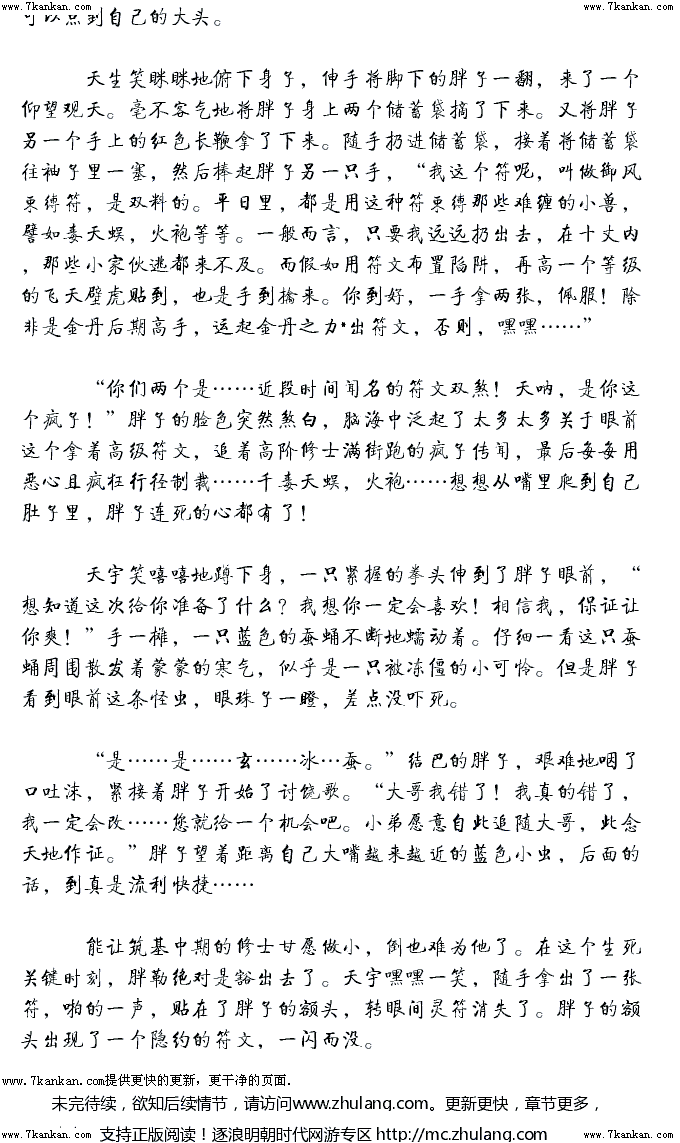 www.7kankan.com www.7kankan.com
可以点到自己的大头。
天生笑眯眯地俯下身子，伸手将脚下的胖子一翻，来了一个
仰望观天。毫不客气地将胖子身上两个储蓄袋摘了下来。又将胖子
另一个手上的红色长鞭拿了下来。随手扔进储蓄袋，接着将储蓄袋
往袖子里一塞，然后捧起胖子另一只手，“我这个符呢，叫做御风
束缚符，是双料的。平日里，都是用这种符束缚那些难缠的小兽，
譬如毒天蜈，火袍等等。一般而言，只要我远远扔出去，在十丈内
，那些小家伙逃都来不及。而假如用符文布置陷阱，再高一个等级
的飞天壁虎贴到，也是手到擒来。你到好，一手拿两张，佩服！除
非是金丹后期高手，运起金丹之力·出符文，否则，嘿嘿……”
“你们两个是……近段时间闻名的符文双煞！天呐，是你这
个疯子！”胖子的脸色突然煞白，脑海中泛起了太多太多关于眼前
这个拿着高级符文，追着高阶修士满街跑的疯子传闻，最后每每用
恶心且疯狂行径制裁……千毒天蜈，火袍……想想从嘴里爬到自己
肚子里，胖子连死的心都有了！
天宇笑嘻嘻地蹲下身，一只紧握的拳头伸到了胖子眼前，“
想知道这次给你准备了什么？我想你一定会喜欢！相信我，保证让
你爽！”手一摊，一只蓝色的蚕蛹不断地蠕动着。仔细一看这只蚕
蛹周围散发着蒙蒙的寒气，似乎是一只被冻僵的小可怜。但是胖子
看到眼前这条怪虫，眼珠子一瞪，差点没吓死。
“是……是……玄……冰…蚕。”结巴的胖子，艰难地咽了
口吐沫，紧接着胖子开始了讨饶歌。“大哥我错了！我真的错了，
我一定会改……您就给一个机会吧。小弟愿意自此追随大哥，此念
天地作证。”胖子望着距离自己大嘴越来越近的蓝色小虫，后面的
话，到真是流利快捷……
能让筑基中期的修士甘愿做小，倒也难为他了。在这个生死
关键时刻，胖勒绝对是豁出去了。天宇嘿嘿一笑，随手拿出了一张
符，啪的一声，贴在了胖子的额头，转眼间灵符消失了。胖子的额
头出现了一个隐约的符文，一闪而没。
www.7kankan.com提供更快的更新，更干净的页面.
未完待续，欲知后续情节，请访问www.zhulang.com。更新更快，章节更多，
www.7kankan.com 支持正版阅读！逐浪明朝时代网游专区 http://mc.zhulang.com/ www.7kankan.com